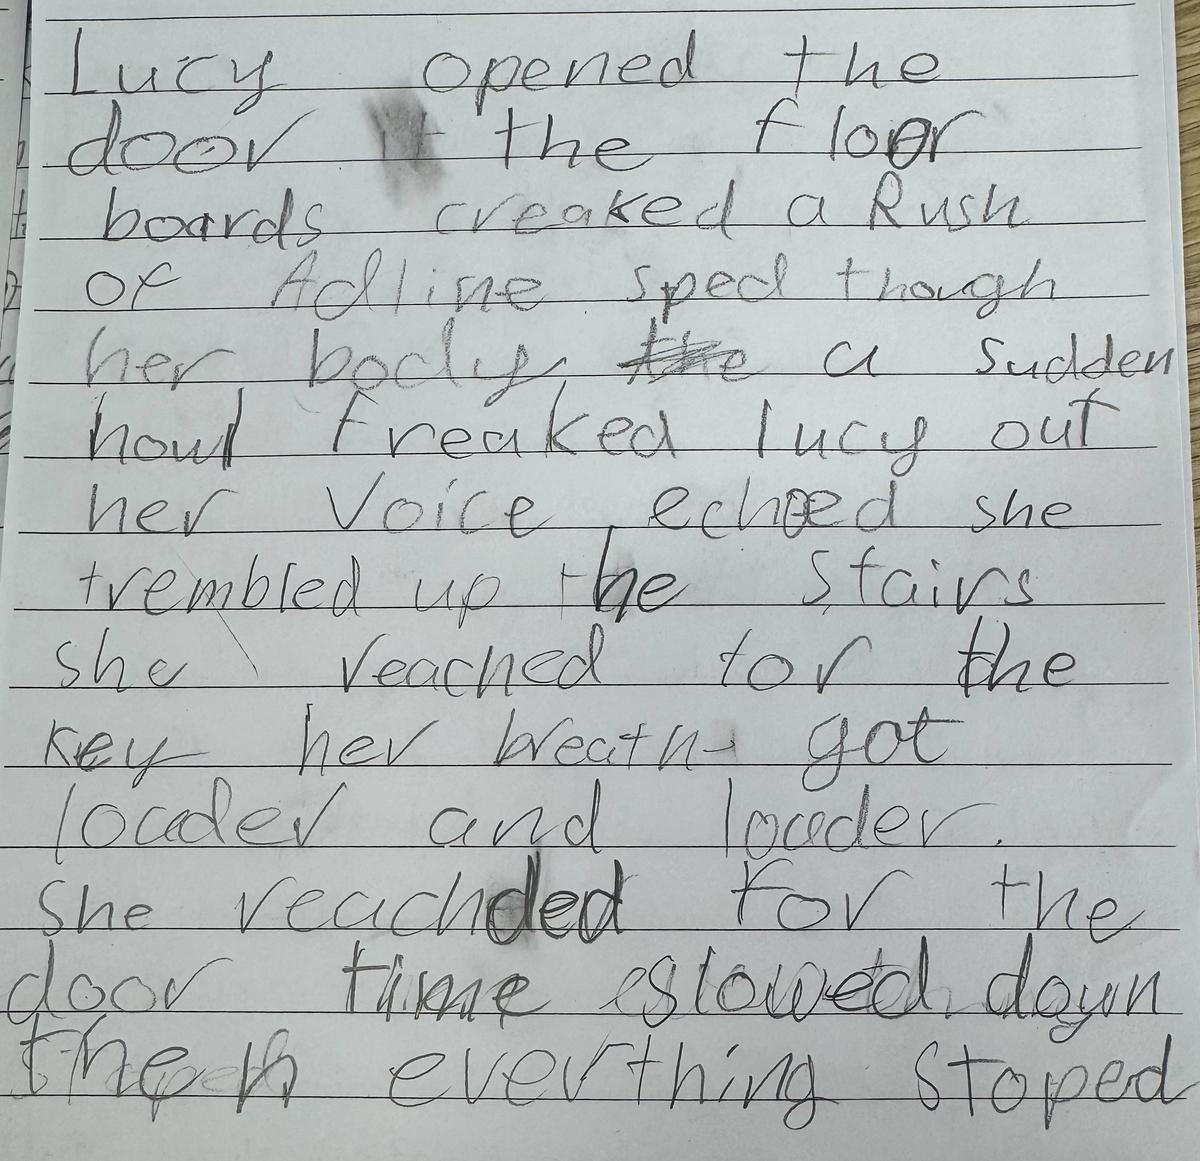 Lucy opened the
door the floor
boards creaked a Rush
of Adline sped though
her body, the a sudden
howl freaked lucy out
her Voice echoed she
trembled up the stairs
she reached for the
key her breath got
louder and louder.
She reachded for the
door time slowed down
then everthing stoped